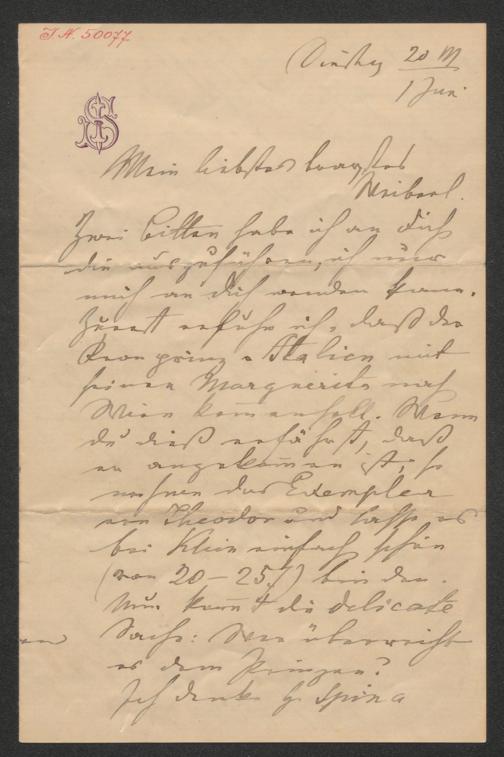 J.N. 50077
Dinstag 20 M
1 Juni
JS
Mein liebstes bravstes
Weiberl.
Zwei Bitten habe ich an Dich
die auszuführen, ich nur
mich an Dich wenden kann.
Zuerst erfuhr ich, daß der
Kronprinz v Italien mit
seiner Margherita nach
Wien kommen soll. Wenn
du dieß erfährst, daß
er angekommen ist, so
nehme das Exemplar
von Theodor und lasse es
bei Klein einfach schön
(von 20–25 f) binden.
Nun kommt die delicate
Sache: Wer überreicht
es dem Prinzen?
Ich denke H. Spina